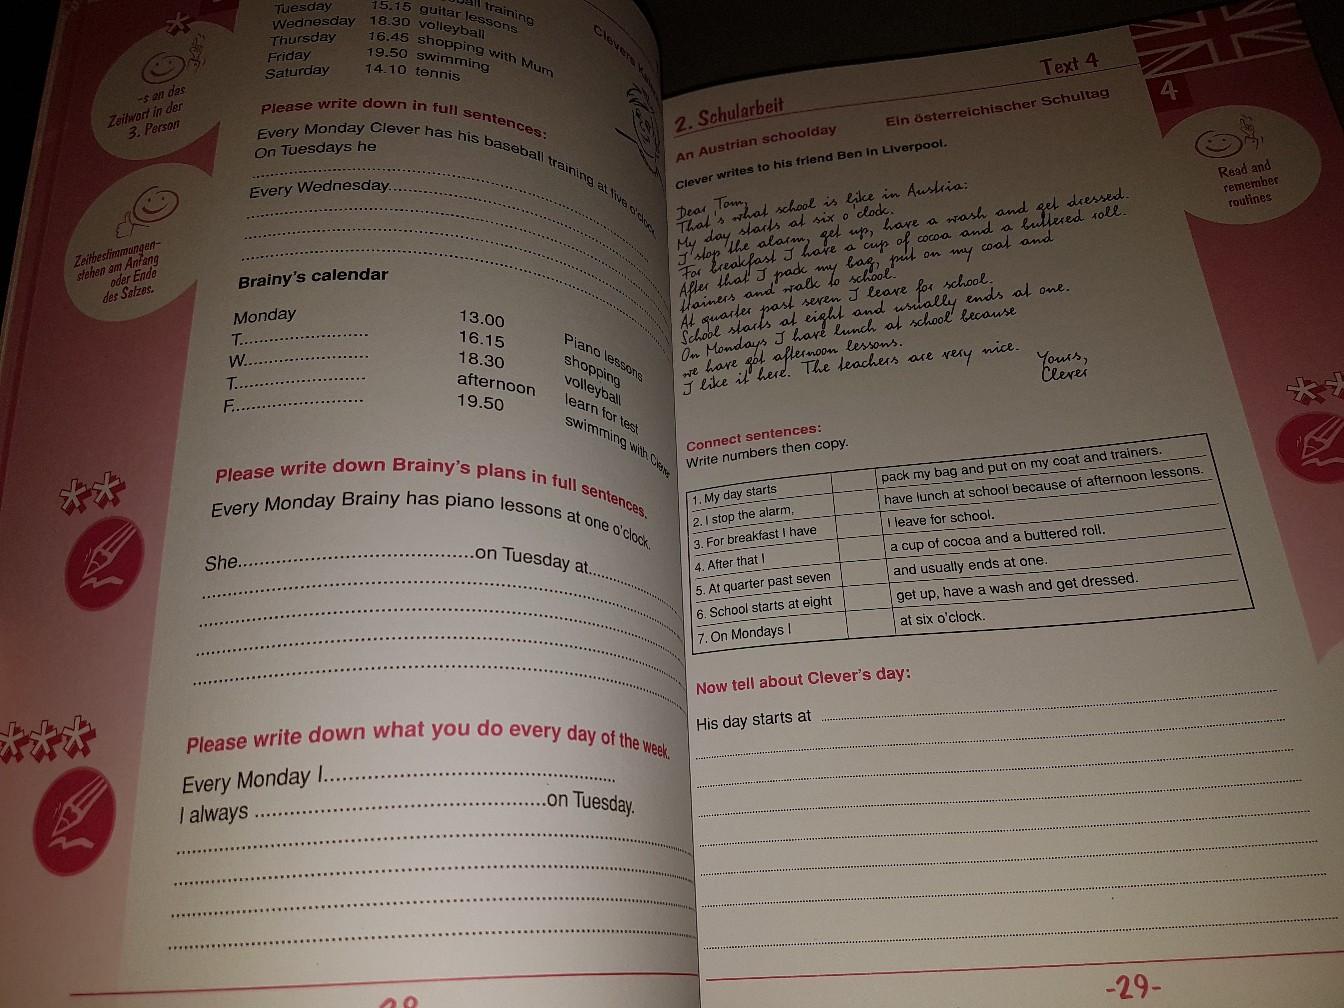 -s an das
Zeitwort in der
3. Person
Zeitbestimmungen-
stehen am Anfang
oder Ende
des Satzes.
training
Tuesday 15.15 guitar lessons
Wednesday 18.30 volleyball
Thursday 16.45 shopping with Mum
Friday 19.50 swimming
Saturday 14.10 tennis
Please write down in full sentences:
Every Monday Clever has his baseball training at five o'clock.
On Tuesdays he
Every Wednesday
Brainy's calendar
Monday 13.00 Piano lessons
T 16.15 shopping
W 18.30 volleyball
T afternoon learn for test
F 19.50 swimming with
Please write down Brainy's plans in full sentences.
Every Monday Brainy has piano lessons at one o'clock.
She on Tuesday at
Please write down what you do every day of the week.
Every Monday I
I always on Tuesday.
Text 4
4
2. Schularbeit
An Austrian schoolday Ein österreichischer Schultag
Clever writes to his friend Ben in Liverpool.
Read and
remember
routines
Dear Tom,
That's what school is like in Austria:
My day starts at six o'clock.
I stop the alarm, get up, have a wash and get dressed.
For breakfast I have a cup of cocoa and a buttered roll.
After that I pack my bag, put on my coat and
trainers and walk to school.
At quarter past seven I leave for school.
School starts at eight and usually ends at one.
On Mondays I have lunch at school because
we have got afternoon lessons.
I like it here. The teachers are very nice.
Yours,
Clever
Connect sentences:
Write numbers then copy.
1. My day starts pack my bag and put on my coat and trainers.
2. I stop the alarm, have lunch at school because of afternoon lessons.
3. For breakfast I have I leave for school.
4. After that I a cup of cocoa and a buttered roll.
5. At quarter past seven and usually ends at one.
6. School starts at eight get up, have a wash and get dressed.
7. On Mondays I at six o'clock.
Now tell about Clever's day:
His day starts at
-29-